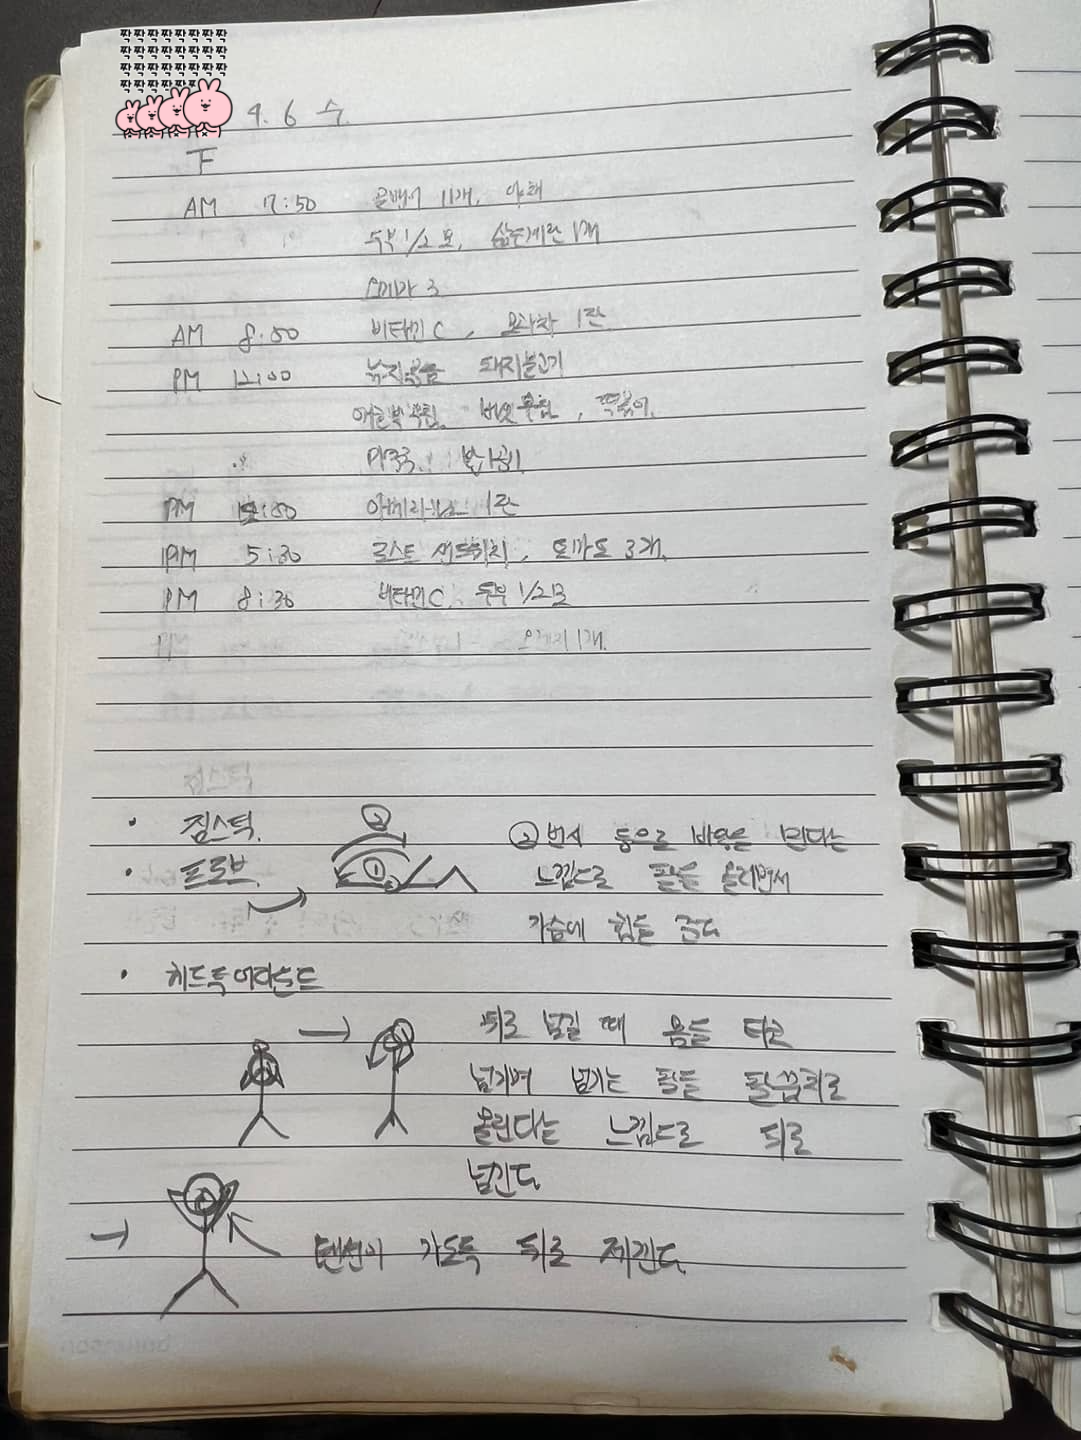 짝짝짝짝짝짝짝짝
짝짝짝짝짝짝짝짝
짝짝짝짝짝짝짝짝
짝짝짝짝짝짝짝짝
4. 6 수.
F
AM 7:50 골뱅이 11개, 야채
두부 1/2 모, 삶은계란 1개
오메가 3
AM 8:50 비타민 C, 모과차 1잔
PM 12:00 돼지불고기
애호박무침, 버섯무침, 떡볶이,
미역국, 밥1공기
PM 아메리카노 1잔
PM 5:30 로스트 샌드위치, 토마토 3개.
PM 8:30 비타민C, 두부 1/2모
오렌지 1개.
· 짐스틱. ② ②번서 등으로 바닥을 민다는
· 프로브. ① 느낌으로 팔을 올리면서
가슴에 힘을 준다
· 헤드 투 어라운드
뒤로 넘길 때 몸을 타고
넘기며 넘기는 팔을 팔꿈치로
올린다는 느낌으로 뒤로
넘긴다
텐션이 가도록 뒤로 제낀다.